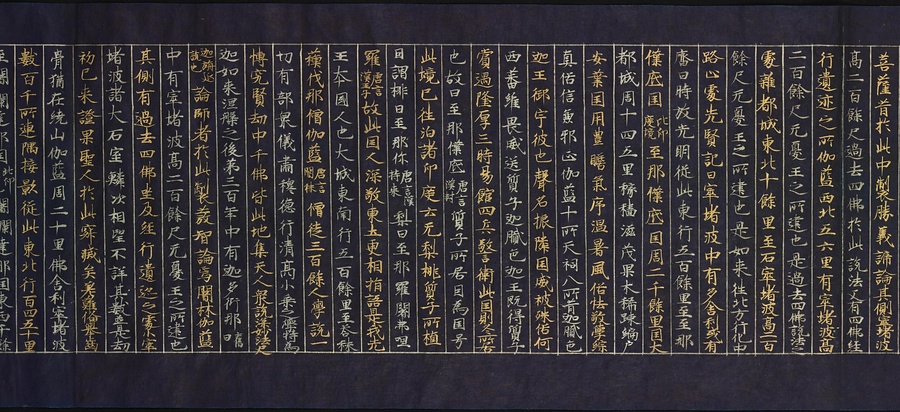 菩薩昔於此中製勝義諦論其側窣堵波
高二百餘尺過去四佛於此說法又有四佛經
行遺迹之所伽藍西北五六里有窣堵波高
二百餘尺无憂王之所建也是過去四佛說法之
處雜都城東北十餘里至石窣堵波高二百
餘尺无憂王之所建也是如來往北方行化中
路止處先賢記曰窣堵波中有多舍利或有
齋日時放光明從此東行五百餘里至至那
僕底国北印度境至那僕底国周二千餘里国大
都城周十四五里稼穡滋茂果木稀疎編戶
安業国用豊贍氣序温暑風俗怯弱學綜
真俗信兼邪正伽藍十所天祠八所昔迦膩色
迦王御宇也聲名振隣国威被殊俗何
西蕃維畏威送質子迦膩色迦王既得質子
賞遇隆厚三時易館四兵警衛此国則冬所居
也故曰至那僕底唐言漢封質子所居因為国号
此境已往洎諸印度土无梨桃質子所植
曰謂桃曰至那你唐言漢持來梨曰至那羅闍弗呾
羅唐言漢王子故此国人深敬東土更相指語是我先
王本国人也大城東南行五百餘里至荅秣
蘓伐那僧伽藍唐言闇林僧徒三百餘人學說一
切有部眾儀肅穆德行清髙小乗之學特為
博究賢劫中千佛皆此地集天人眾說深妙法
迦如来涅槃之後第三百年中有迦多衍那舊曰
迦旃延訛也論師者於此製發智論焉闇林伽藍
中有窣堵波高二百餘尺无憂王之所建也
其側有過去四佛坐及經行遺迹之處窣
堵波諸大石室鱗次相望不詳其數並是劫
初已来證果聖人於此寂滅矣差難俻舉齒
骨猶在繞山伽藍周二十里佛舍利窣堵波
數百千所連隅接影從此東北行百四五十里
至闍闌達那国北印闍闌達那国東西千餘